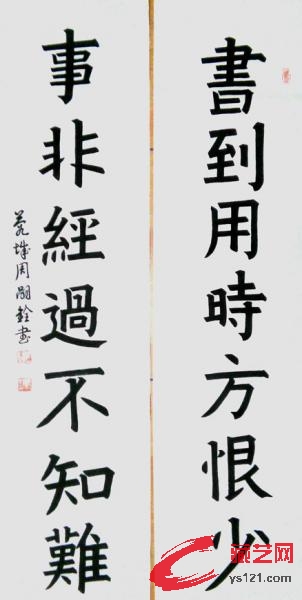 書到用時方恨少
事非經過不知難
城周嗣銓書
藏艺网
ys121.com